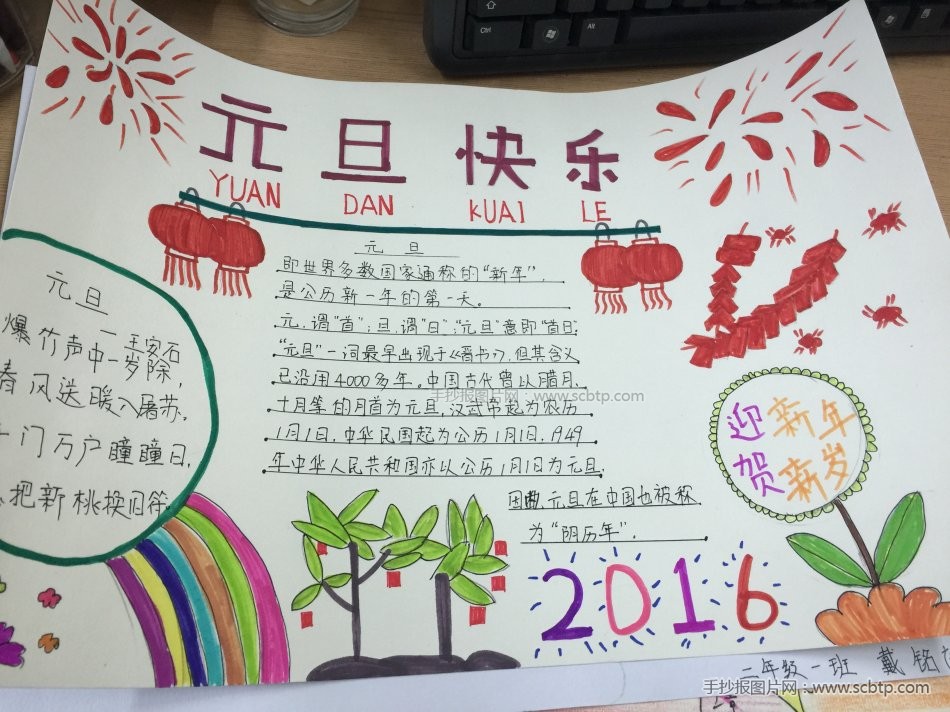 元旦快乐
YUAN DAN KUAI LE
元旦
即世界多数国家通称的“新年”,
是公历新一年的第一天。
元,谓“首”;旦,谓“日”;“元旦”意即“首日”
“元旦”一词最早出现于《晋书》,但其含义
已沿用4000多年。中国古代曾以腊月、
十月等的月首为元旦,汉武帝起为农历
1月1日,中华民国起为公历1月1日,1949
年中华人民共和国亦以公历1月1日为元旦,
因此元旦在中国也被称
为“阴历年”.
元旦
王安石
爆竹声中一岁除,
春风送暖入屠苏,
门万户瞳瞳日,
把新桃换旧符
迎新年
贺新岁
2016
二年级一班 戴铭
手抄报图片网:www.scbtp.com
手抄报图片网:www.scbtp.com
Ctrl
Alt